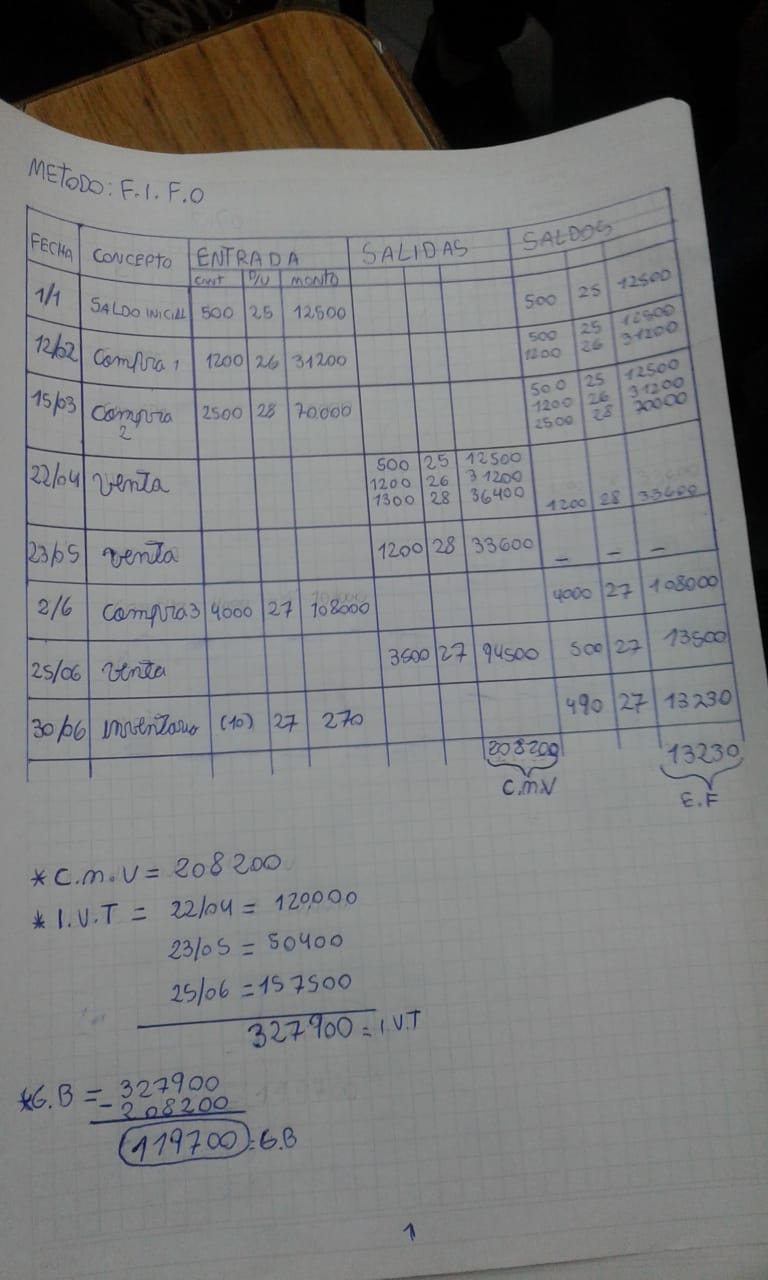 METODO: F.I.F.O
FECHA CONCEPTO ENTRADA SALIDAS SALDOS
cant P/U MONTO
1/1 SALDO INICIAL 500 25 12500 500 25 12500
12/02 Compra 1 1200 26 31200 500 25 12500
1200 26 31200
15/03 Compra 2 2500 28 70.000 500 25 12500
1200 26 31200
2500 28 70000
22/04 Venta 500 25 12500
1200 26 31200
1300 28 36400 1200 28 33600
23/05 Venta 1200 28 33600 – – –
2/6 Compra 3 4000 27 108000 4000 27 108000
25/06 Venta 3500 27 94500 500 27 13500
30/06 Inventario (10) 27 270 490 27 13230
208200 13230
C.M.V E.F
* C.M.V = 208200
* I.V.T = 22/04 = 120.000
23/05 = 50400
25/06 = 157500
327900 = I.V.T
*G.B = 327900
- 208200
119700 = G.B
1